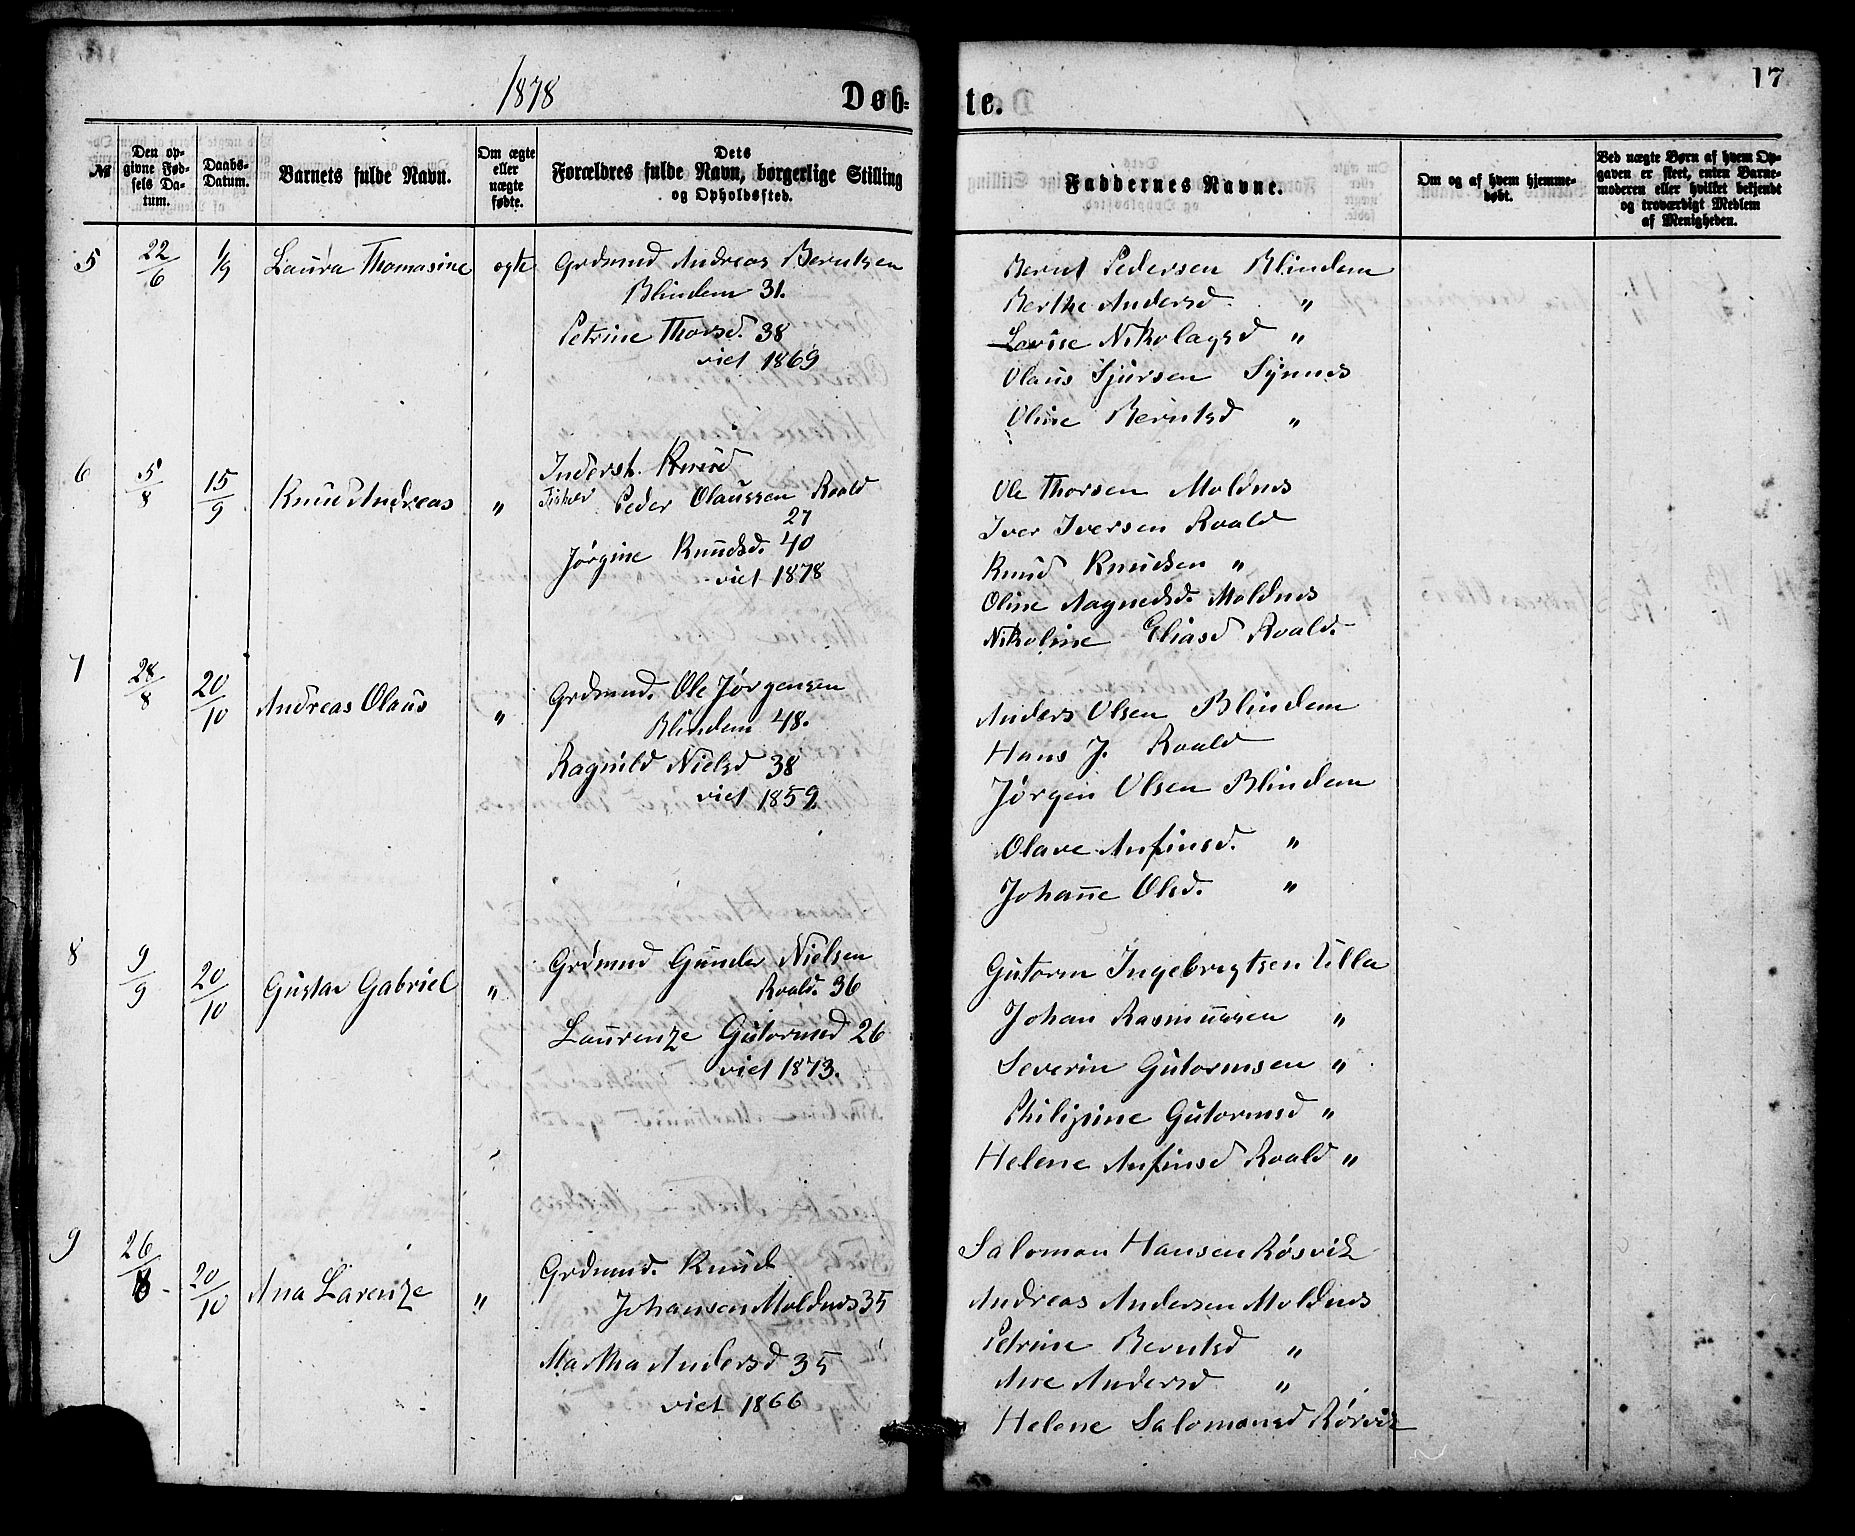 1878
Døb-
te.
17
№
Den op-
givne Fød-
sels Da-
tum.
Daabs-
Datum.
Barnets fulde Navn.
Om ægte
eller
uægte
fødte.
Dets
Forældres fulde Navn, borgerlige Stilling
og Opholdssted.
Faddernes Navne.
Om og af hvem hjemme-
døbt.
Ved uægte Børn af hvem Op-
gaven er skeet, enten Barne-
moderen eller hvilket bekjendt
og troværdigt Medlem
af Menigheden.
5 22/6 1/9 Laura Thomasine ægte Grdmnd Andreas Berntsen
Blindem 31.
Petrine Thorsd. 38
viet 1869
Bernt Pedersen Blindem
Berthe Andersd. "
Lovise Nikolaysd "
Olaus Sjursen Synnes
Oline Berntsd "
6 5/8 15/9 Knud Andreas " Inderst. Knud
Fisker Peder Olaussen Roald
27
Jørgine Knudsd. 40
viet 1878
Ole Thorsen Moldnes
Iver Iversen Roald
Knud Knudsen "
Oline Aagnedsd. Moldnes
Nikoline Eliasd Roald.
7 28/8 20/10 Andreas Olaus " Grdmnd. Ole Jørgensen
Blindem 48.
Ragnild Nielsd 38
viet 1859.
Anders Olsen Blindem
Hans J. Roald
Jørgen Olsen Blindem
Olave Anfinsd. "
Johanne Olsd. "
8 9/9 20/10 Gustav Gabriel " Grdmnd Gunder Nielsen
Roald. 36
Laurenze Gutormsd 26
viet 1873.
Gutorm Ingebrigtsen Ulla
Johan Rasmussen "
Severin Gutormsen "
Philipine Gutormsd "
Helene Anfinsd Roald "
9 26/8 20/10 Ana Larenze " Grdmnd. Knud
Johansen Moldnes 35
Martha Andersd 35
viet 1866
Salomon Hansen Røsvik
Andreas Andersen Moldnes
Petrine Berntsd "
Ane Andersd "
Helene Salomonsd Rørvik